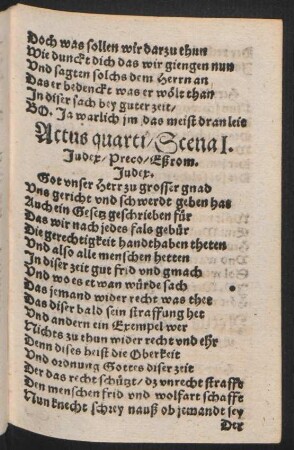 Doch was sollen wir darzu thun
Wie dunckt dich das wir giengen nun
Vnd sagten solchs dem Herrn an
Das er bedenckt was er wölt than
In diser sach bey guter zeit/
BO. Ja warlich jm das meist dran leit
Actus quarti/ Scena I.
Judex/ Preco/ Eßrom.
Judex.
Got vnser Herr zu grosser gnad
Vns gericht vnd schwerdt geben hat
Auch ein Gesetz geschrieben für
Das wir nach jedes fals gebür
Die gerechtigkeit handthaben thetten
Vnd also alle menschen hetten
In diser zeit gut frid vnd gmach
Vnd wo es et wan würde sach
Das jemand wider recht was thet
Das diser bald sein straffung het
Vnd andern ein Exempel wer
Nichts zu thun wider recht vnd ehr
Denn dises heist die Oberkeit
Vnd ordnung Gottes diser zeit
Der das recht schützt/ dz vnrecht straffe
Den menschen frid vnd wolfart schaffe
Nun knecht schrey nauß ob jemandt sey
Der